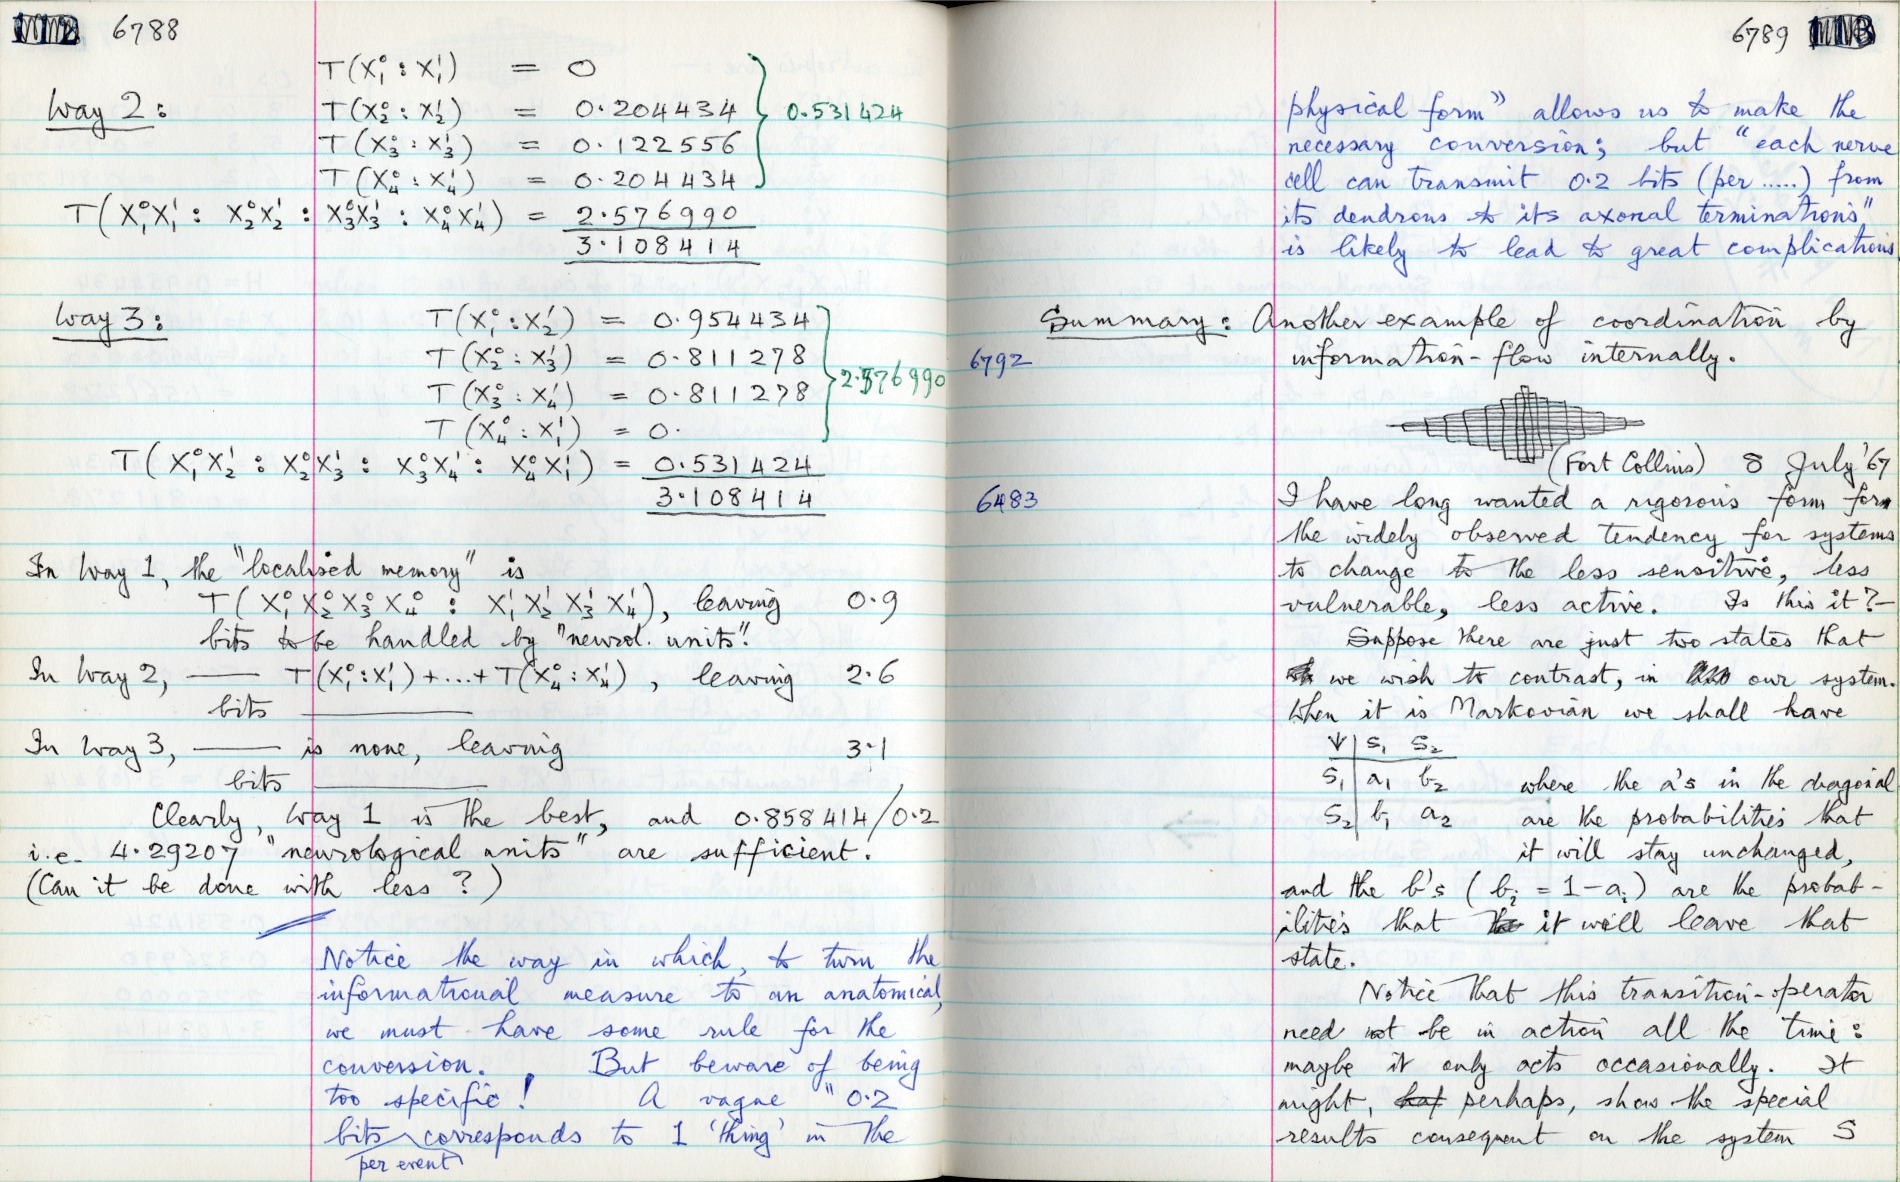 6788
T(X₁⁰ : X₁¹) = 0
Way 2: T(X₂⁰ : X₂¹) = 0.204434 0.531424
T(X₃⁰ : X₃¹) = 0.122556
T(X₄⁰ : X₄¹) = 0.204434
T(X₁⁰X₁¹ : X₂⁰X₂¹ : X₃⁰X₃¹ : X₄⁰X₄¹) = 2.576990
3.108414
Way 3: T(X₁⁰ : X₂¹) = 0.954434
T(X₂⁰ : X₃¹) = 0.811278
2.576990
T(X₃⁰ : X₄¹) = 0.811278
T(X₄⁰ : X₁¹) = 0.
T(X₁⁰X₂¹ : X₂⁰X₃¹ : X₃⁰X₄¹ : X₄⁰X₁¹) = 0.531424
3.108414
In Way 1, the "localised memory" is
T(X₁⁰X₂⁰X₃⁰X₄⁰ : X₁¹X₂¹X₃¹X₄¹), leaving 0.9
bits to be handled by "neurol. units".
In Way 2, —— T(X₁⁰:X₁¹)+...+T(X₄⁰:X₄¹), leaving 2.6
bits ————
In Way 3, —— is none, leaving 3.1
bits ————
Clearly, Way 1 is the best, and 0.858414/0.2
i.e. 4.29207 "neurological units" are sufficient.
(Can it be done with less ?)
Notice the way in which, to turn the
informational measure to an anatomical,
we must have some rule for the
conversion. But beware of being
too specific! A vague "0.2
bits corresponds to 1 'thing' in the
per event
6789
physical form" allows us to make the
necessary conversion; but "each nerve
cell can transmit 0.2 bits (per .....) from
its dendrons to its axonal terminations"
is likely to lead to great complications
Summary: Another example of coordination by
6792 information-flow internally.
(Fort Collins) 8 July '67
6483 I have long wanted a rigorous form for
the widely observed tendency for systems
to change to the less sensitive, less
vulnerable, less active. Is this it?—
Suppose there are just two states that
we wish to contrast, in our system.
When it is Markovian we shall have
↓ S₁ S₂
S₁ a₁ b₂ where the a's in the diagonal
S₂ b₁ a₂ are the probabilities that
it will stay unchanged,
and the b's (bᵢ = 1-aᵢ) are the probab-
ilities that it will leave that
state.
Notice that this transition-operator
need not be in action all the time:
maybe it only acts occasionally. It
might, perhaps, show the special
results consequent on the system S